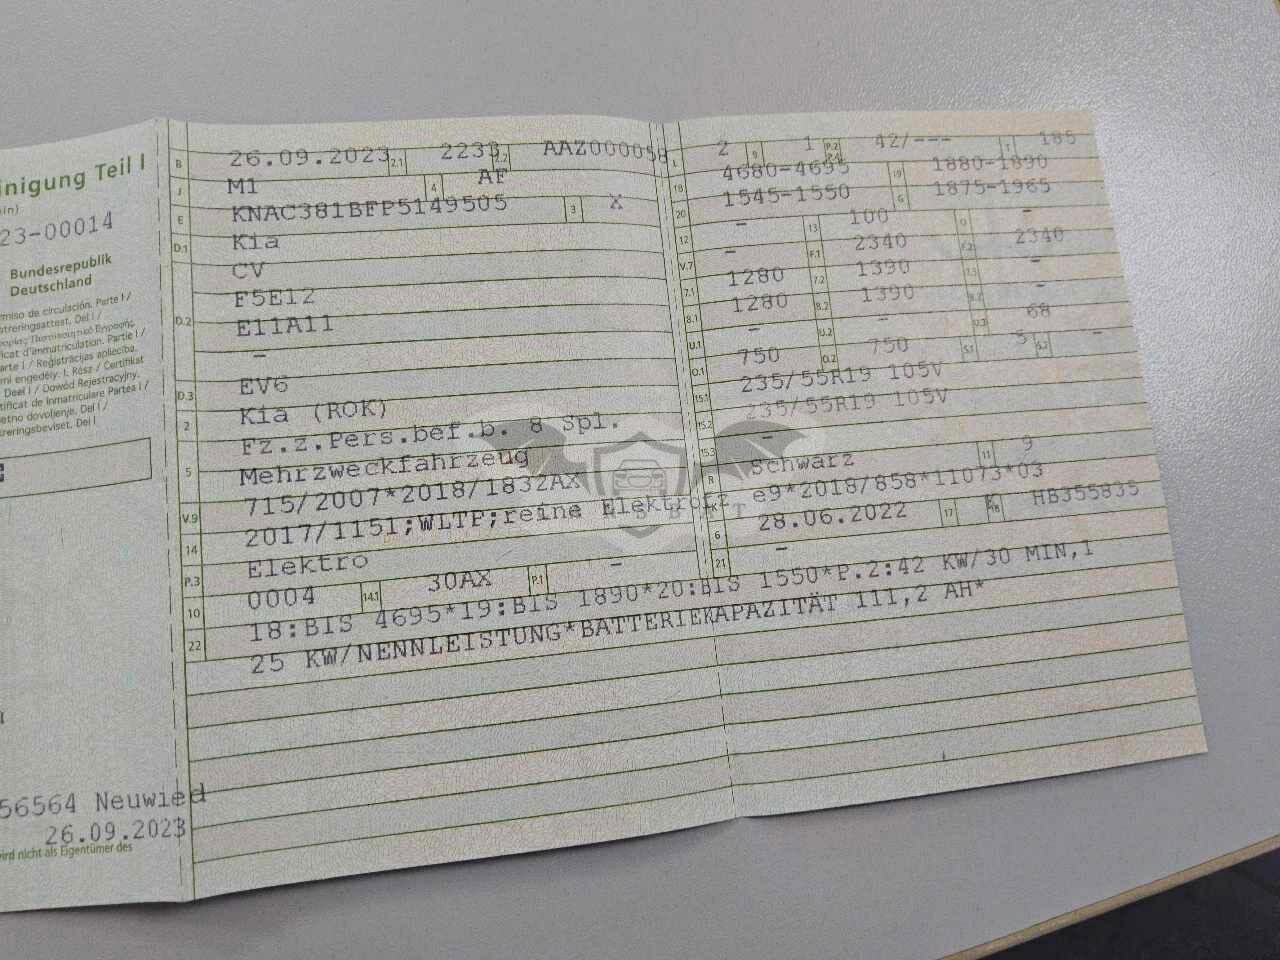 inigung Teil I
in)
23-00014
Bundesrepublik
Deutschland
miso de circulación. Parte I /
treringsattest. Del I /
icat d'immatriculation. Partie I /
arte I / Reģistrācijas apliecība.
mi engedély. I. Rész / Certifikat
Deel I / Dowód Rejestracyjny.
tificat de Inmatriculare Partea I /
etno dovoljenje. Del I /
treringsbeviset. Del I
56564 Neuwied
26.09.2023
wird nicht als Eigentümer des
B 26.09.2023 2.1 2233 2.2 AAZ000058
J M1 4 AF
E KNAC381BFP5149505 3 X
D.1 Kia
CV
D.2 F5E12
E11A11
-
D.3 EV6
2 Kia (ROK)
5 Fz.z.Pers.bef.b. 8 Spl.
Mehrzweckfahrzeug
V.9 715/2007*2018/1832AX
14 2017/1151;WLTP;reine Elektrofz.
P.3 Elektro
10 0004 14.1 30AX P.1 -
L 2 9 1 P.2 42/--- T 185
18 4680-4695 19 1880-1890
20 1545-1550 G 1875-1965
12 - 13 100 Q -
V.7 - F.1 2340 F.2 2340
7.1 1280 7.2 1390 7.3 -
8.1 1280 8.2 1390 8.3 -
U.1 - U.2 - U.3 68
O.1 750 O.2 750 S.1 5 S.2 -
15.1 235/55R19 105V
15.2 235/55R19 105V
15.3 -
R Schwarz 11 9
K e9*2018/858*11073*03
6 28.06.2022 17 K 16 HB355835
21 -
22 18:BIS 4695*19:BIS 1890*20:BIS 1550*P.2:42 KW/30 MIN,1
25 KW/NENNLEISTUNG*BATTERIEKAPAZITÄT 111,2 AH*